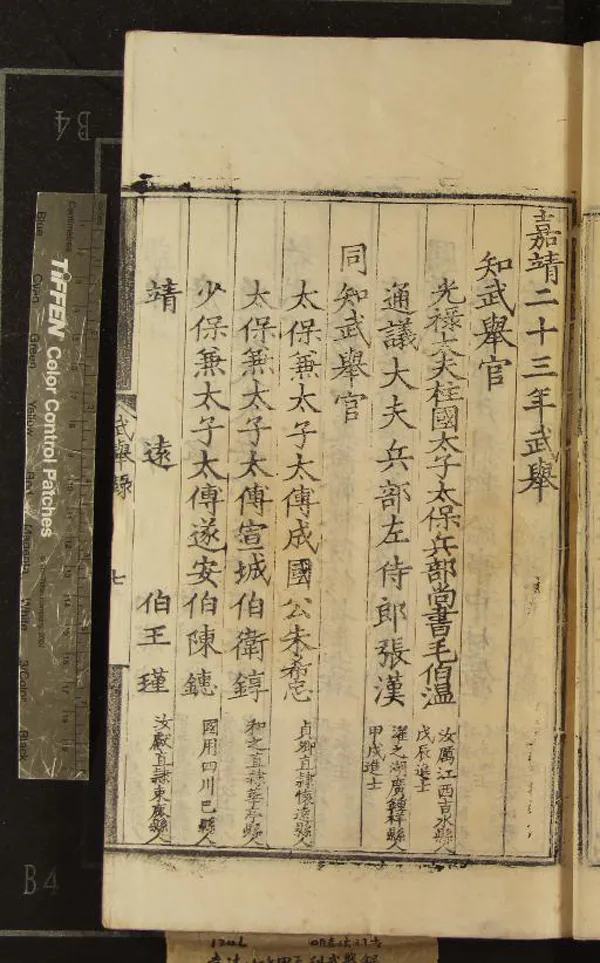 嘉靖二十三年武舉
知武舉官
光祿大夫柱國太子太保兵部尚書毛伯溫 汝厲江西吉水縣人
戊辰進士
通議大夫兵部左侍郎張漢 濯之湖廣鍾祥縣人
甲戌進士
同知武舉官
太保兼太子太傅成國公朱希忠 貞卿直隸懷遠縣人
太保兼太子太傅宣城伯衛錞 和之直隸華亭縣人
少保兼太子太傅遂安伯陳鏸 國用四川巴縣人
靖遠伯王瑾 汝獻直隸東鹿縣人
武舉錄
七
TIFFEN Color Control Patches
Blue
Green
Yellow
Red
Magenta
White
3/Color
Black
Centimetres
B4
B4